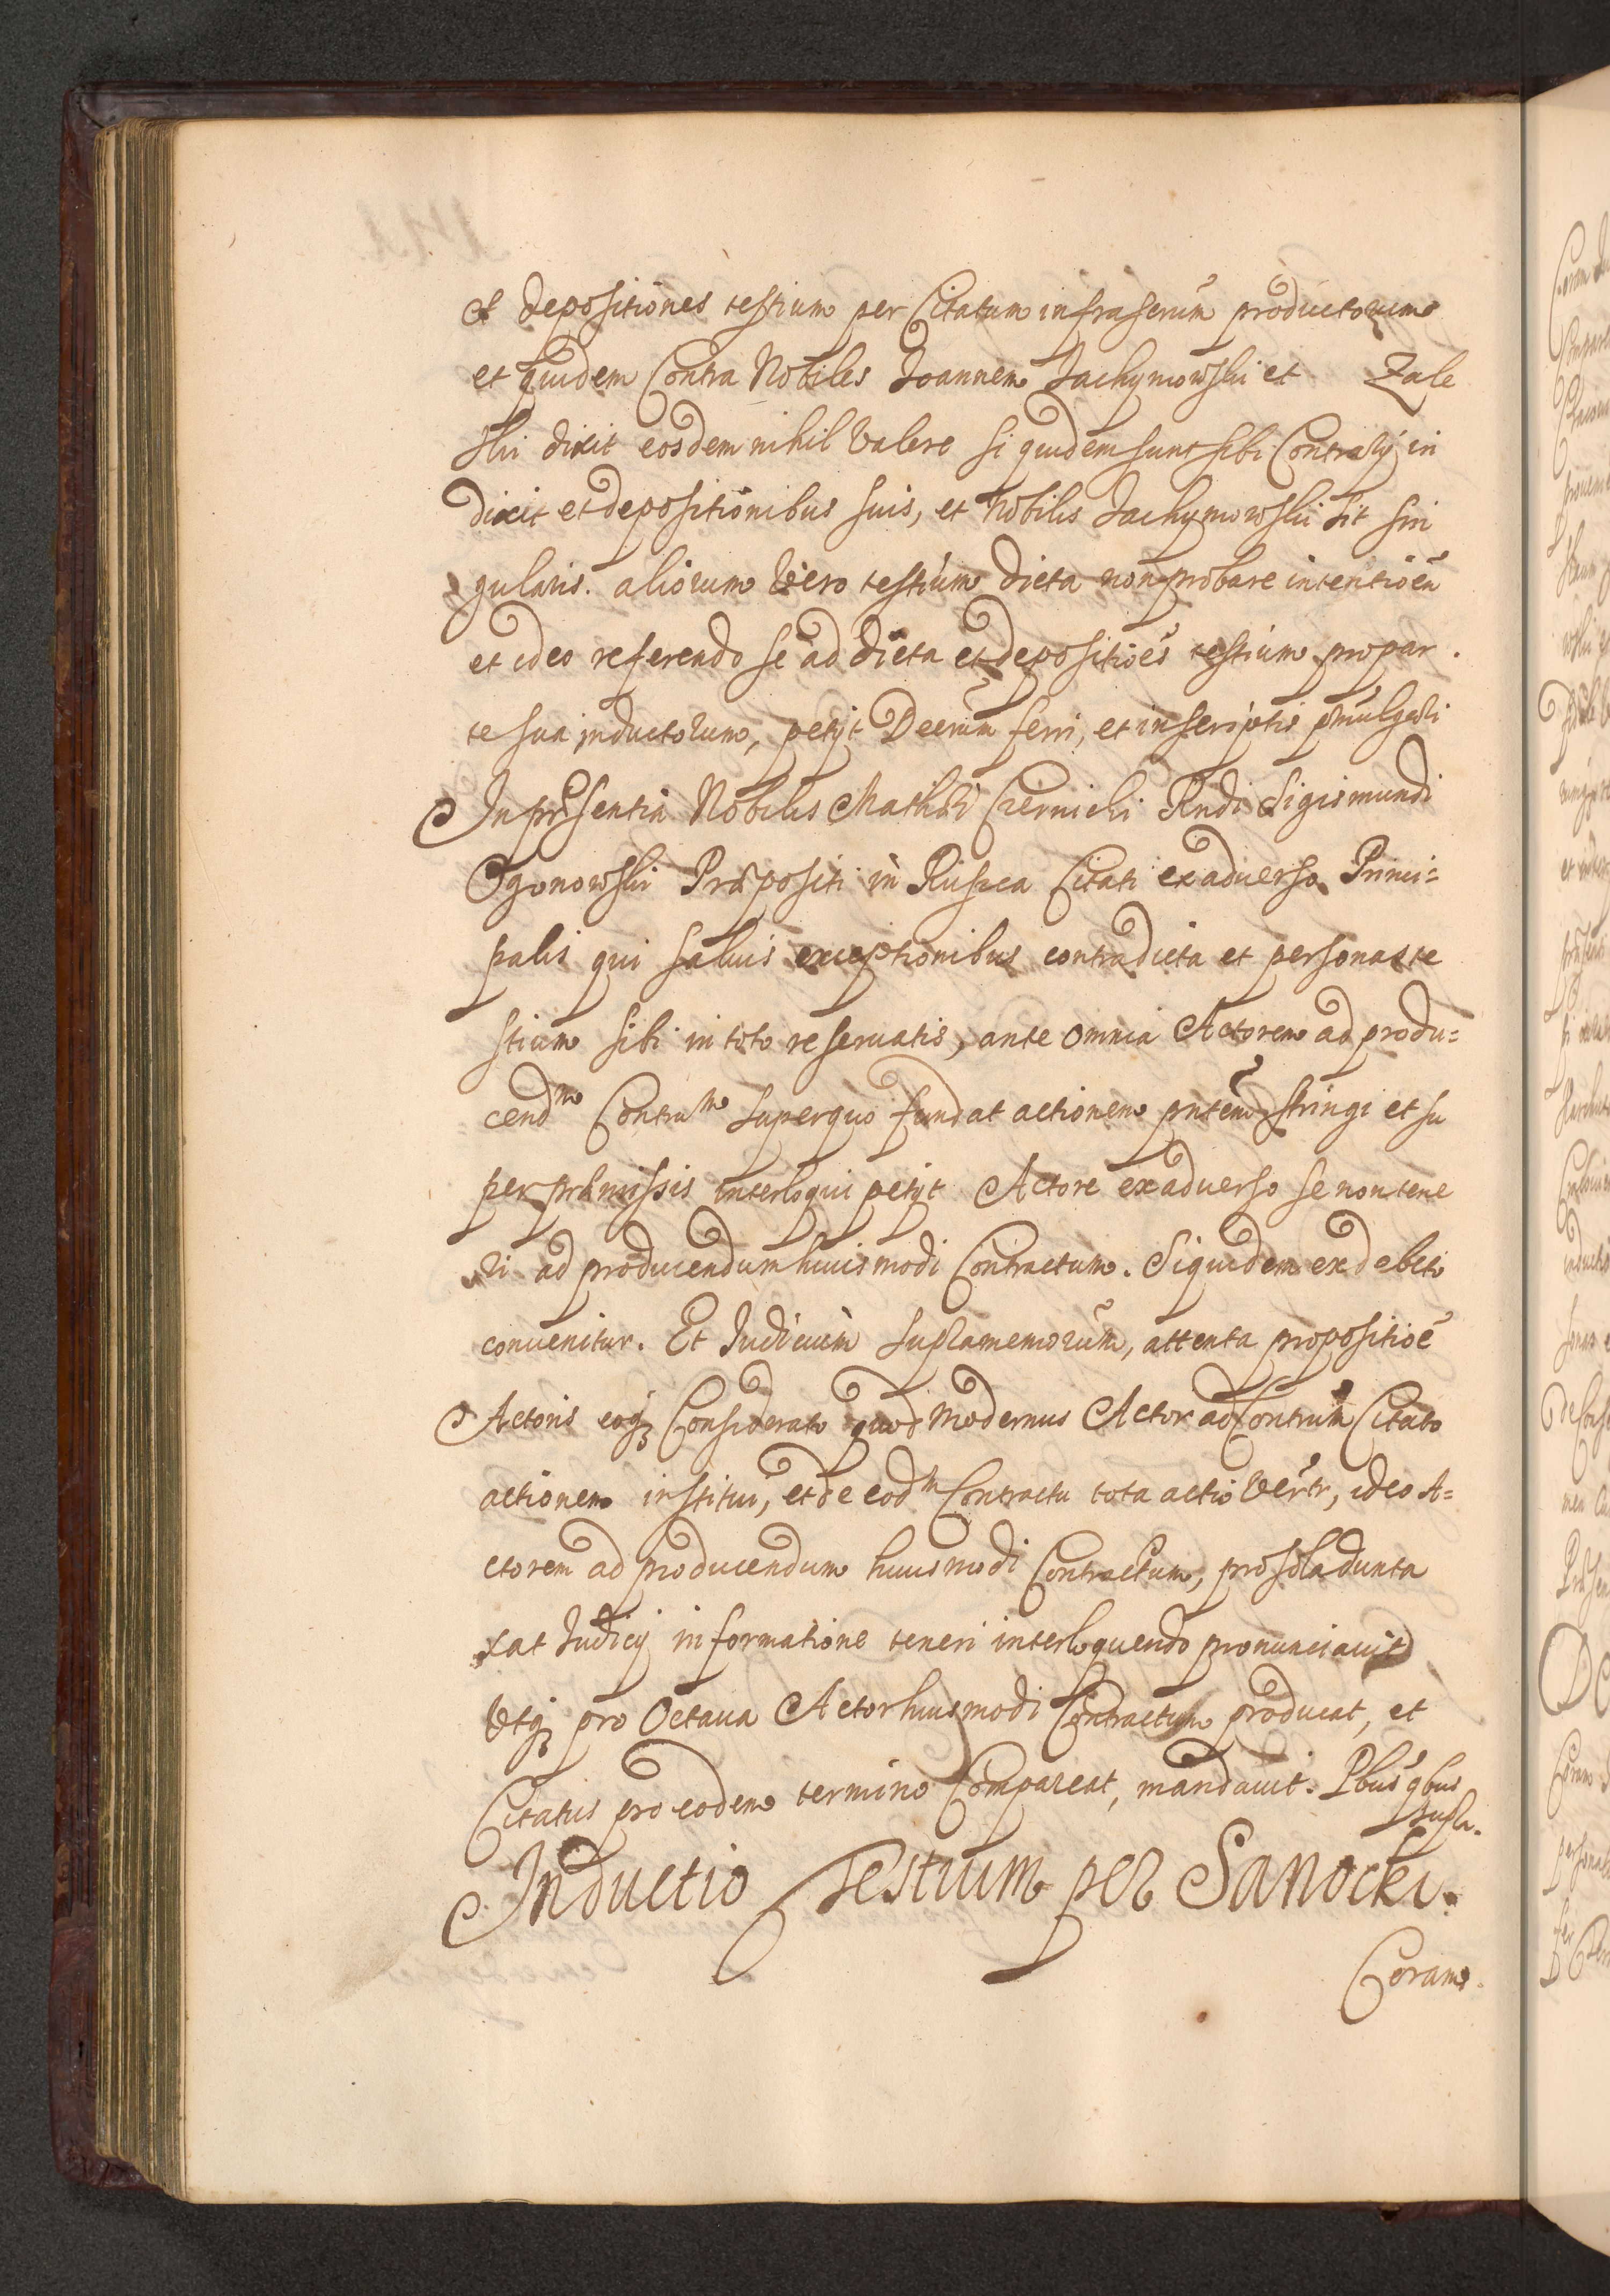 et depositiones testium per Citatum infrascrũm productorum
et quidem Contra Nobiles Joannem Jachymowski et Zale
ski dixit eosdem nihil valere si quidem sunt sibi Contrarij in
dixit et depositionibus suis, et Nobilis Jachymowski sit sin
gularis. aliorum vero testium dicta non probare intentioẽn
et ideo referendo se ad dicta et depositioẽs testium propar
te sua inductorum, petijt Decrũm ferri, et in scriptis pmulgari
In præsentia Nobilis Mathiæ Czernicki Rndi Sigismundi
Ogonowski Præpositi in Ruszca Citati ex aduerso Princi=
palis qui saluis exceptionibus contra dicta et personas te
stium sibi in toto reseruatis, ante omnia Actorem ad produ=
cendm Contrum super quo fundat actionem pntem stringi et su
per præmissis interloqui petijt Actore ex aduerso se non tene
ri ad producendum huiusmodi Contractum. Siquidem ex debito
conuenitur. Et Judicium supramemorũm, attenta propositioẽ
Actoris eoq3 Considerato quod modernus Actor ad Contrũm Citato
actionem instituit, et de eodm Contractu tota actio vertr, ideo A=
ctorem ad producendum huiusmodi Contractum, pro sola dunta
xat Judicij informatione teneri interloquendo pronunciauit
Vtq3 pro Octaua Actor huiusmodi Contractum producat, et
Citatus pro eodem termino Compareat, mandauit. Pbus qbus
supra.
Inductio Testium per Sanocki.
Coram